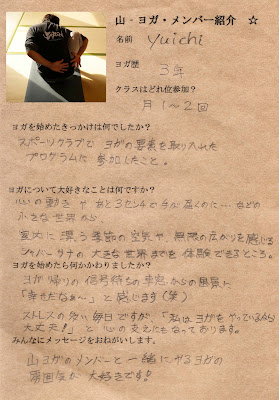 山-ヨガ・メンバー紹介 ☆
名前 Yuichi
ヨガ歴
3年
クラスはどれ位参加?
月1〜2回
ヨガを始めたきっかけは何でしたか?
スポーツクラブで ヨガの要素を取り入れた
プログラムに 参加したこと。
ヨガについて大好きなことは何ですか?
心の動き や あと3センチで手が 届くのに… などの
小さな世界から
室内に漂う季節の空気や、無限の広がりを感じる
シャバーサナの 大きな世界までを 体験できるところ。
ヨガを始めたら何かかわりましたか?
ヨガ帰りの 信号待ちの 車窓からの風景に
「幸せだなぁ〜」と 感じます(笑)
ストレスの多い毎日ですが、「私はヨガを やっているから
大丈夫!」と 心の支えにもなっております。
みんなにメッセージをおねがいします。
山ヨガのメンバーと 一緒にやるヨガの
雰囲気が 大好きです!!